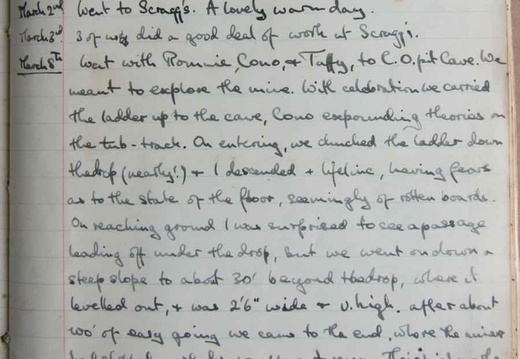 March 2nd Went to Scragg's. A lovely warm day.
March 3rd 3 of us did a good deal of work at Scragg's.
March 8th Went with Ronnie, Cono, & Taffy, to C.O. pit Cave. We
meant to explore the mine. With celebration we carried
the ladder up to the cave, Cono expounding theories on
the tub-track. On entering, we chucked the ladder down
the drop (nearly!) & I descended + lifeline, having fears
as to the state of the floor, seemingly of rotten boards.
On reaching ground I was surprised to see a passage
leading off under the drop, but we went on down a
steep slope to about 30' beyond the drop, where it
levelled out, & was 2'6" wide & v. high. After about
100' of easy going we came to the end, where the miner